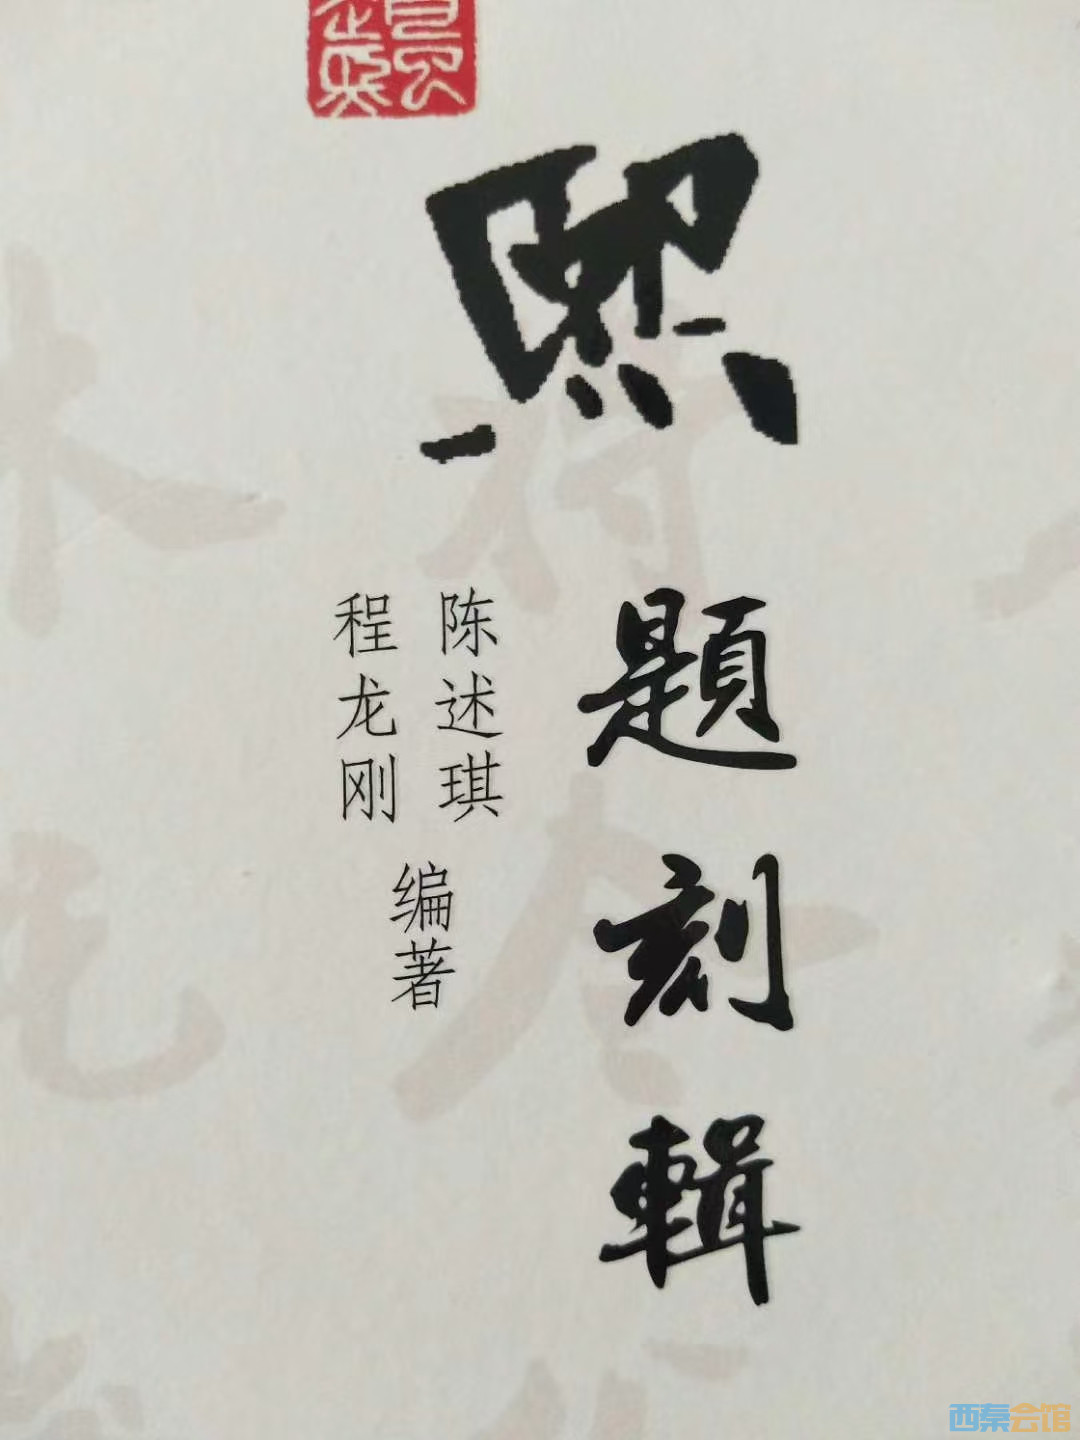 熙
題刻輯
陈述琪
程龙刚
编著
西秦会馆